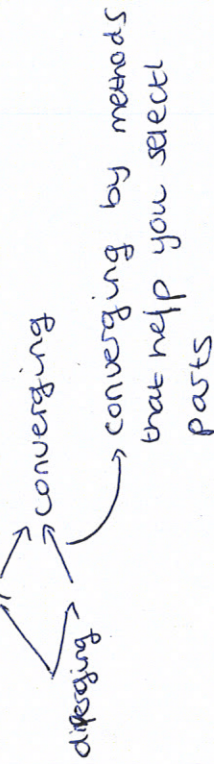 converging
diverging
converging by methods
that help you select
parts